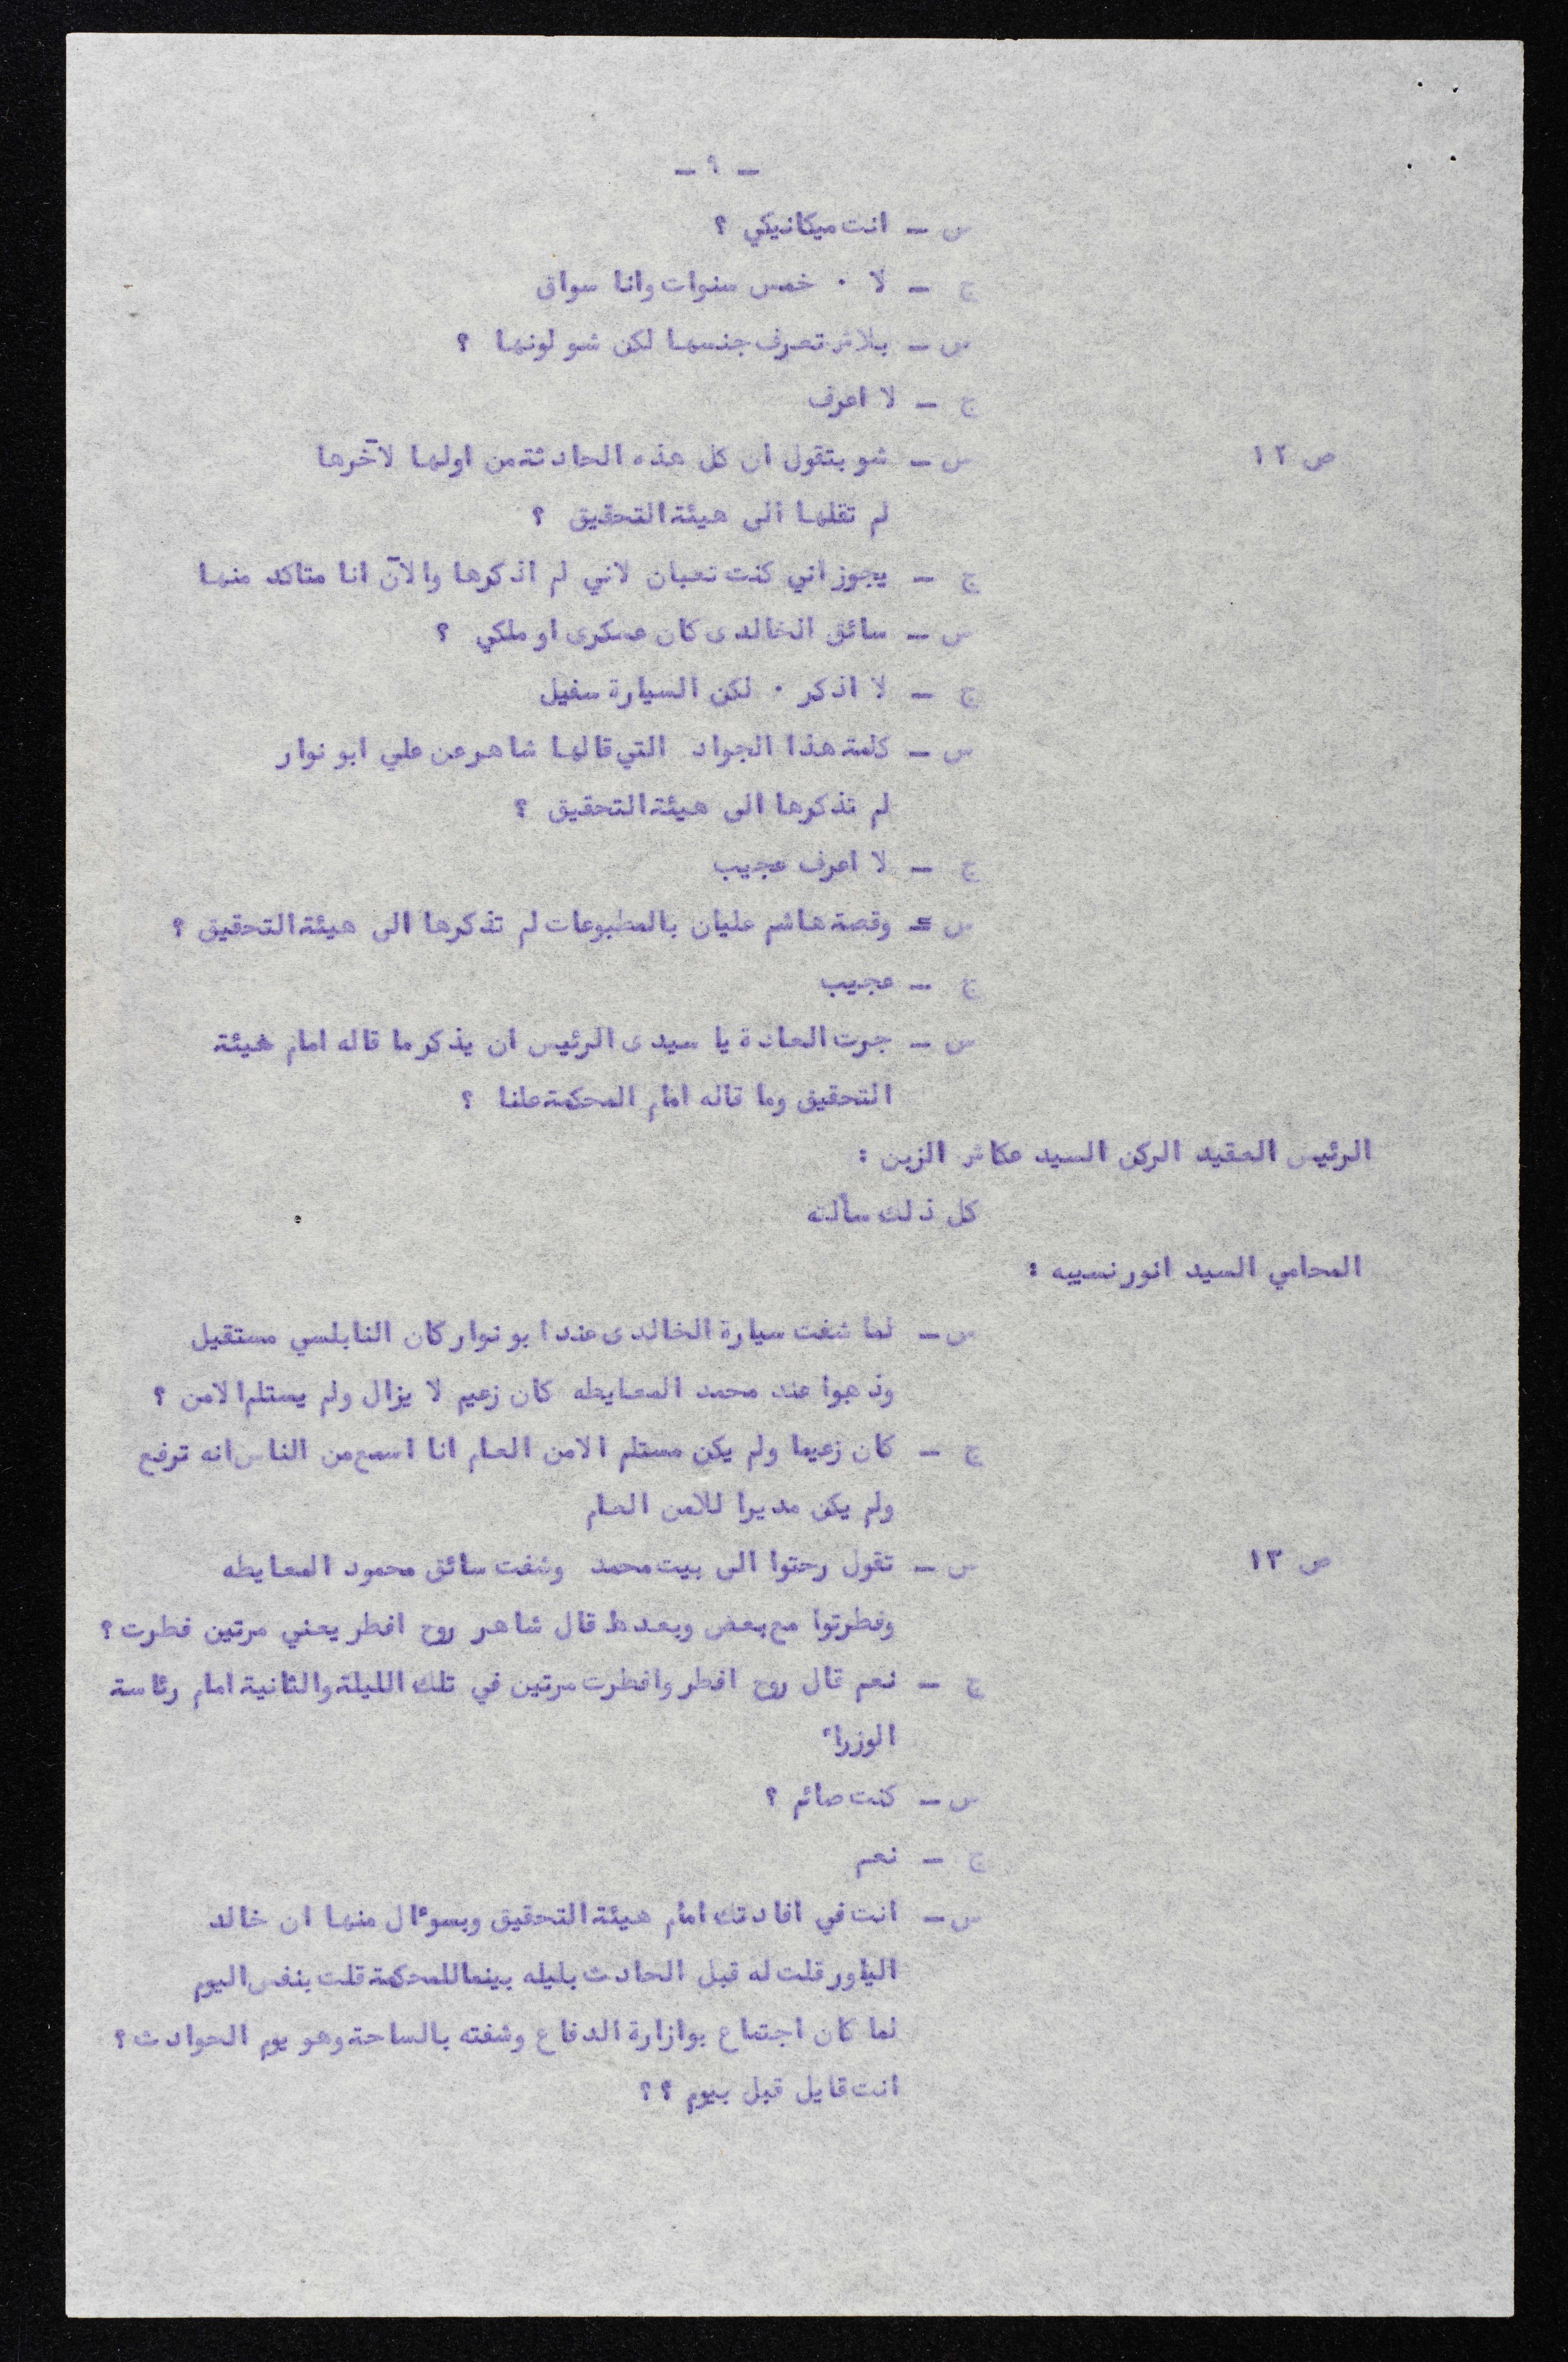 - ٩ -
س - انت ميكانيكي ؟
ج - لا ٠ خمس سنوات وانا سواق
س - بلاش تعرف جنسها لكن شو لونها ؟
ج - لا اعرف
ص ١٢ س - شو بتقول ان كل هذه الحادثة من اولها لآخرها
لم تقلها الى هيئة التحقيق ؟
ج - يجوز اني كنت تعبان لاني لم اذكرها والآن انا متاكد منها
س - سائق الخالدى كان عسكرى او ملكي ؟
ج - لا اذكر ٠ لكن السيارة سفيل
س - كلمة هذا الجواد التي قالها شاهر عن علي ابو نوار
لم تذكرها الى هيئة التحقيق ؟
ج - لا اعرف عجيب
س = وقصة هاشم عليان بالمطبوعات لم تذكرها الى هيئة التحقيق ؟
ج - عجيب
س - جرت العادة يا سيدى الرئيس ان يذكر ما قاله امام هيئة
التحقيق وما قاله امام المحكمة علنا ؟
الرئيس العقيد الركن السيد عكاش الزبن :
كل ذلك سألته
المحامي السيد انور نسيبه :
س - لما شفت سيارة الخالدى عند ابو نوار كان النابلسي مستقيل
وذهبوا عند محمد المعايطه كان زعيم لا يزال ولم يستلم الامن ؟
ج - كان زعيما ولم يكن مستلم الامن العام انا اسمع من الناس انه ترفع
ولم يكن مديرا للامن العام
ص ١٣ س - تقول رحتوا الى بيت محمد وشفت سائق محمود المعايطه
وفطرتوا مع بعض وبعدها قال شاهر روح افطر يعني مرتين فطرت ؟
ج - نعم قال روح افطر وافطرت مرتين في تلك الليلة والثانية امام رئاسة
الوزراء
س - كنت صائم ؟
ج - نعم
س - انت في افادتك امام هيئة التحقيق وبسوءال منها ان خالد
الياور قلت له قبل الحادث بليله بينما للمحكمة قلت بنفس اليوم
لما كان اجتماع بوازارة الدفاع وشفته بالساحة وهو يوم الحوادث ؟
انت قايل قبل بيوم ؟ ؟